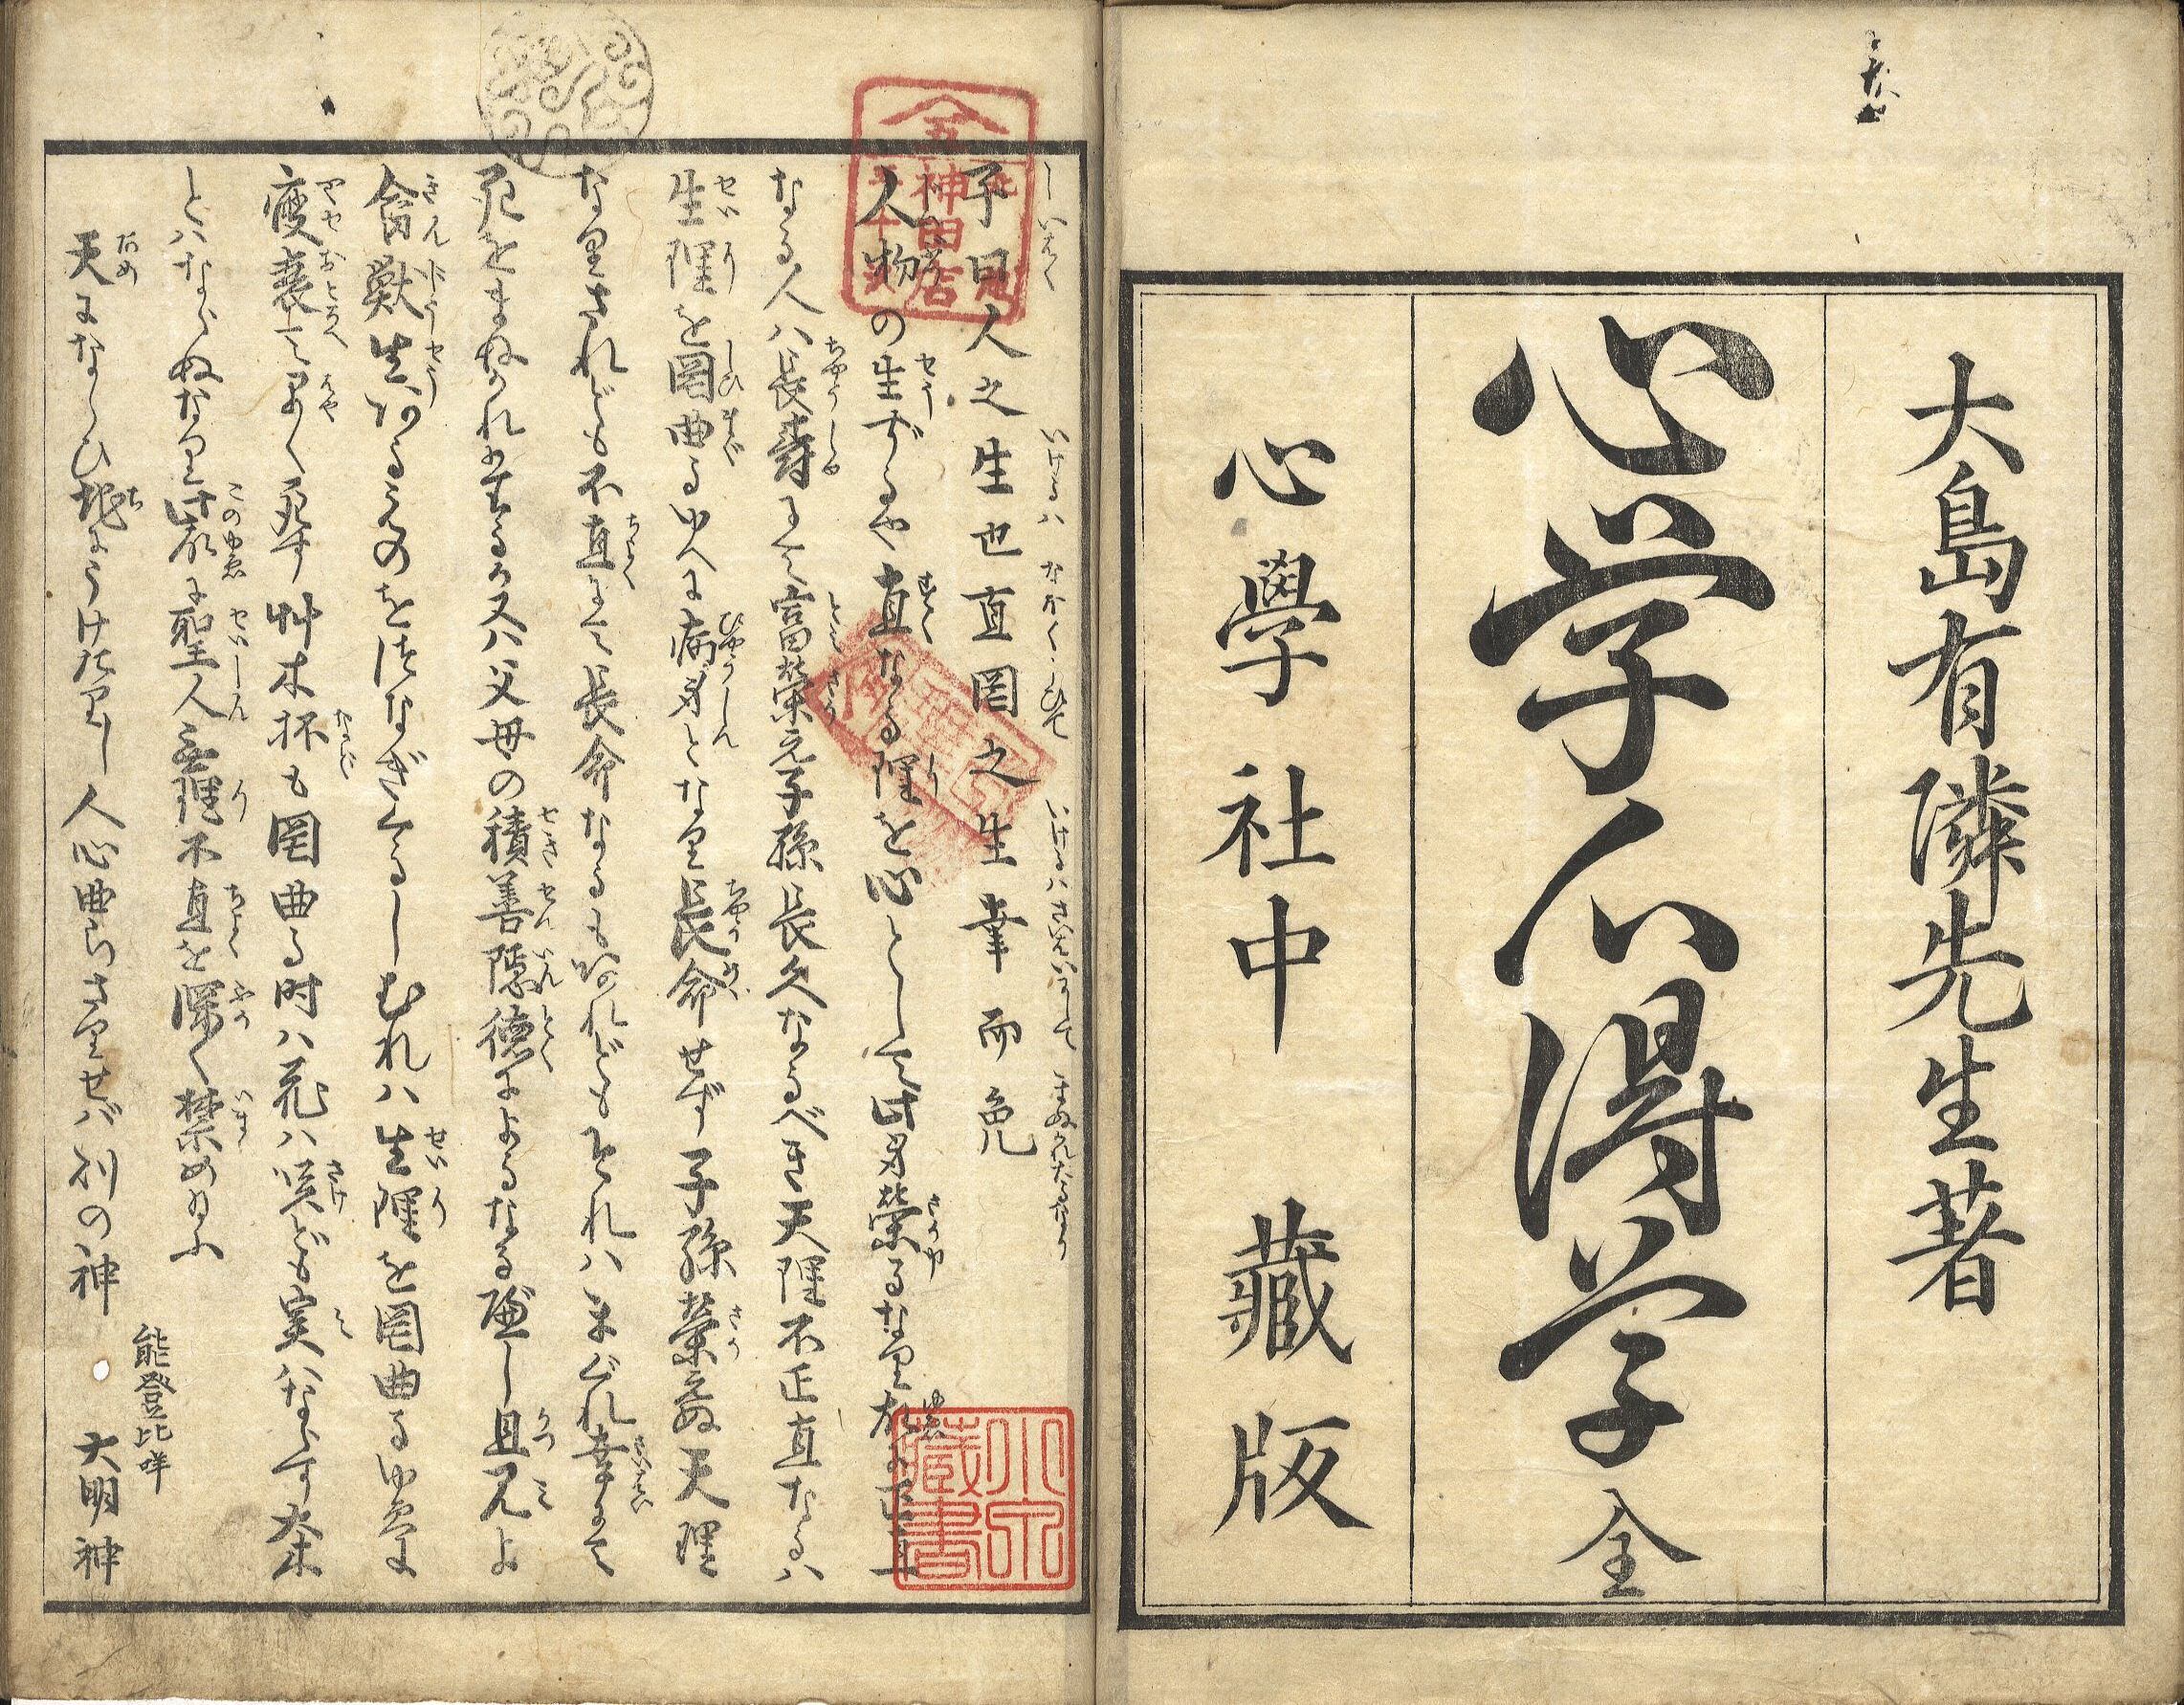 大島有隣先生著
心学心得学全
心學社中 藏版
子曰人之生也直罔之生幸而免
人物の生ずるや直なる理を心として此身榮るなり故に正直
なる人ハ長壽にして富榮え子孫長久なるべき天理不正直なるハ
生理を罔曲るゆへに病身となり長命せず子孫榮えぬ天理
なりされども不直にして長命なるもあれどもそれハまぐれ幸にて
死をまぬかれおするか又ハ父母の積善隠徳によるなる
且見よ
禽獣生あるものをつなぎくるしむれハ生理を罔曲るゆゑに
瘦衰て早く死す艸木杯も罔曲る時ハ花ハ咲ども実ハならず
とハならぬなり此故に聖人無理不直を深く禁め給ふ
天にならひ地にうけたりし人心曲らさりせバ則の神
能登比咩
大明神
小泉藏書
神田店